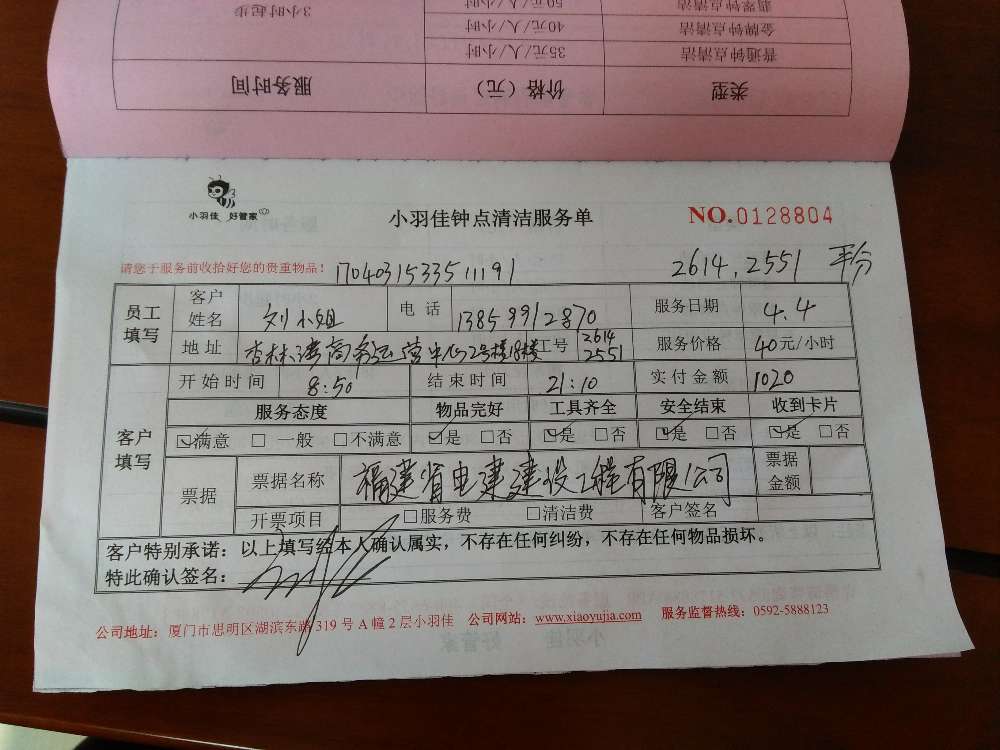 翡翠钟点清洁 50元/人/小时 3小时起步
金牌钟点清洁 40元/人/小时
普通钟点清洁 35元/人/小时
类型 价格（元） 服务时间
小羽佳 好管家
小羽佳钟点清洁服务单
NO.0128804
请您于服务前收拾好您的贵重物品！ 17040315335111191 2614,2551 平分
员工填写 客户姓名 刘小姐 电话 13859912870 服务日期 4.4
地址 杏林湾商务运营中心2号楼18楼 工号 2614 2551 服务价格 40元/小时
客户填写 开始时间 8:50 结束时间 21:10 实付金额 1020
服务态度 物品完好 工具齐全 安全结束 收到卡片
☑满意 □一般 □不满意 ☑是 □否 ☑是 □否 ☑是 □否 ☑是 □否
票据 票据名称 福建省电建建设工程有限公司 票据金额
开票项目 □服务费 □清洁费 客户签名
客户特别承诺：以上填写经本人确认属实，不存在任何纠纷，不存在任何物品损坏。
特此确认签名：
公司地址：厦门市思明区湖滨东路319号A幢2层小羽佳 公司网站：www.xiaoyujia.com 服务监督热线：0592-5888123